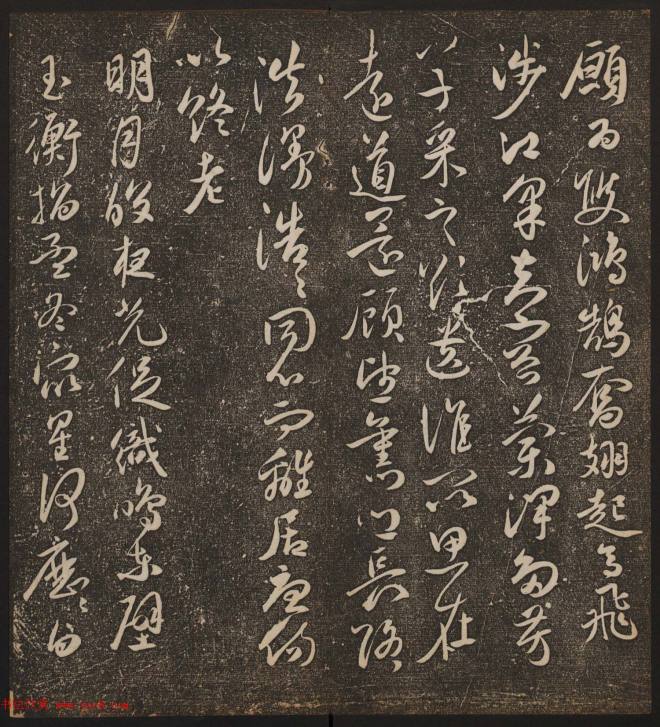 願為雙鴻鵠奮翅起高飛
涉江采芙蓉蘭澤多芳
草采之欲遺誰所思在
遠道還顧望舊鄉長路
漫浩浩同心而離居憂傷
以終老
明月皎夜光促織鳴東壁
玉衡指孟冬衆星何歷歷白